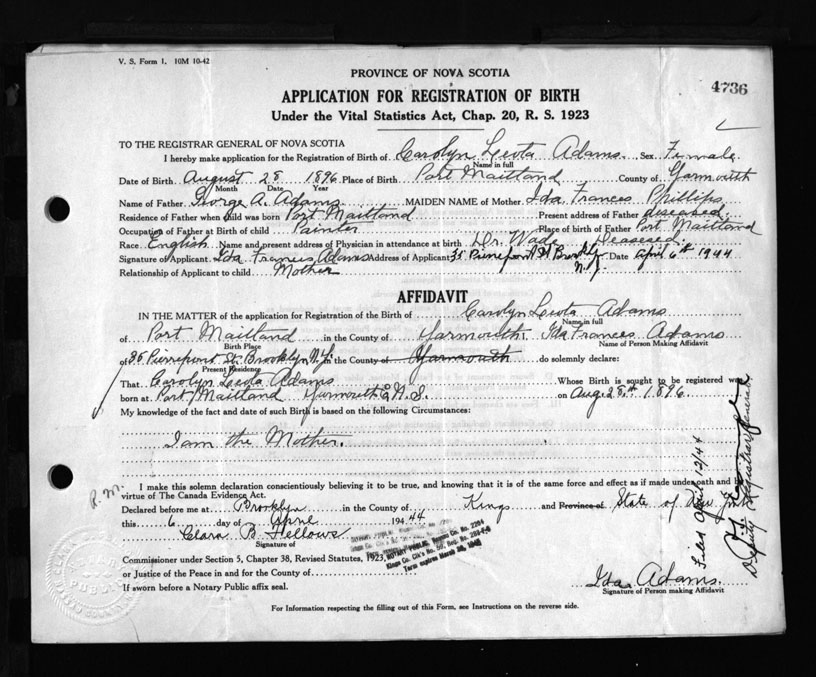 V. S. Form 1. 10M 10-42
PROVINCE OF NOVA SCOTIA
4736
APPLICATION FOR REGISTRATION OF BIRTH
Under the Vital Statistics Act, Chap. 20, R. S. 1923
TO THE REGISTRAR GENERAL OF NOVA SCOTIA
I hereby make application for the Registration of Birth of Carolyn Leota Adams. Sex Female
Name in full
Date of Birth August 28 1896 Place of Birth Port Maitland County of Yarmouth
Month Date Year
Name of Father George A. Adams. MAIDEN NAME of Mother Ida Frances Phillips
Residence of Father when child was born Port Maitland Present address of Father diseased.
Occupation of Father at Birth of child Painter Place of birth of Father Port Maitland
Race English Name and present address of Physician in attendance at birth Dr. Wade Deaseased.
Signature of Applicant Ida Frances Adams Address of Applicant 35 Pierrepont St Brooklyn N.Y. Date April 6th 1944
Relationship of Applicant to child Mother
AFFIDAVIT
IN THE MATTER of the application for Registration of the Birth of Carolyn Leota Adams
Name in full
of Port Maitland in the County of Yarmouth, Ida Frances Adams
Birth Place Name of Person Making Affidavit
of 35 Pierrepont St. Brooklyn N.Y. in the County of Yarmouth do solemnly declare:
Present Residence
That Carolyn Leota Adams Whose Birth is sought to be registered was
born at Port Maitland Yarmouth Co. N.S. on Aug. 28th 1896.
My knowledge of the fact and date of such Birth is based on the following Circumstances:
I am the Mother.
I make this solemn declaration conscientiously believing it to be true, and knowing that it is of the same force and effect as if made under oath and by
virtue of The Canada Evidence Act.
R.M.
Declared before me at Brooklyn in the County of Kings and Province of State of New York
this 6 day of April 1944
Clara B. Fellows
Signature of
NOTARY PUBLIC
Kings Co. Clk's No. 59, Reg. No.
Term expires March 30, 194
Commissioner under Section 5, Chapter 38, Revised Statutes, 1923,
or Justice of the Peace in and for the County of
If sworn before a Notary Public affix seal.
Ida Adams.
Signature of Person making Affidavit
For Information respecting the filling out of this Form, see Instructions on the reverse side.
Filed April 12/44
Deputy Registrar General